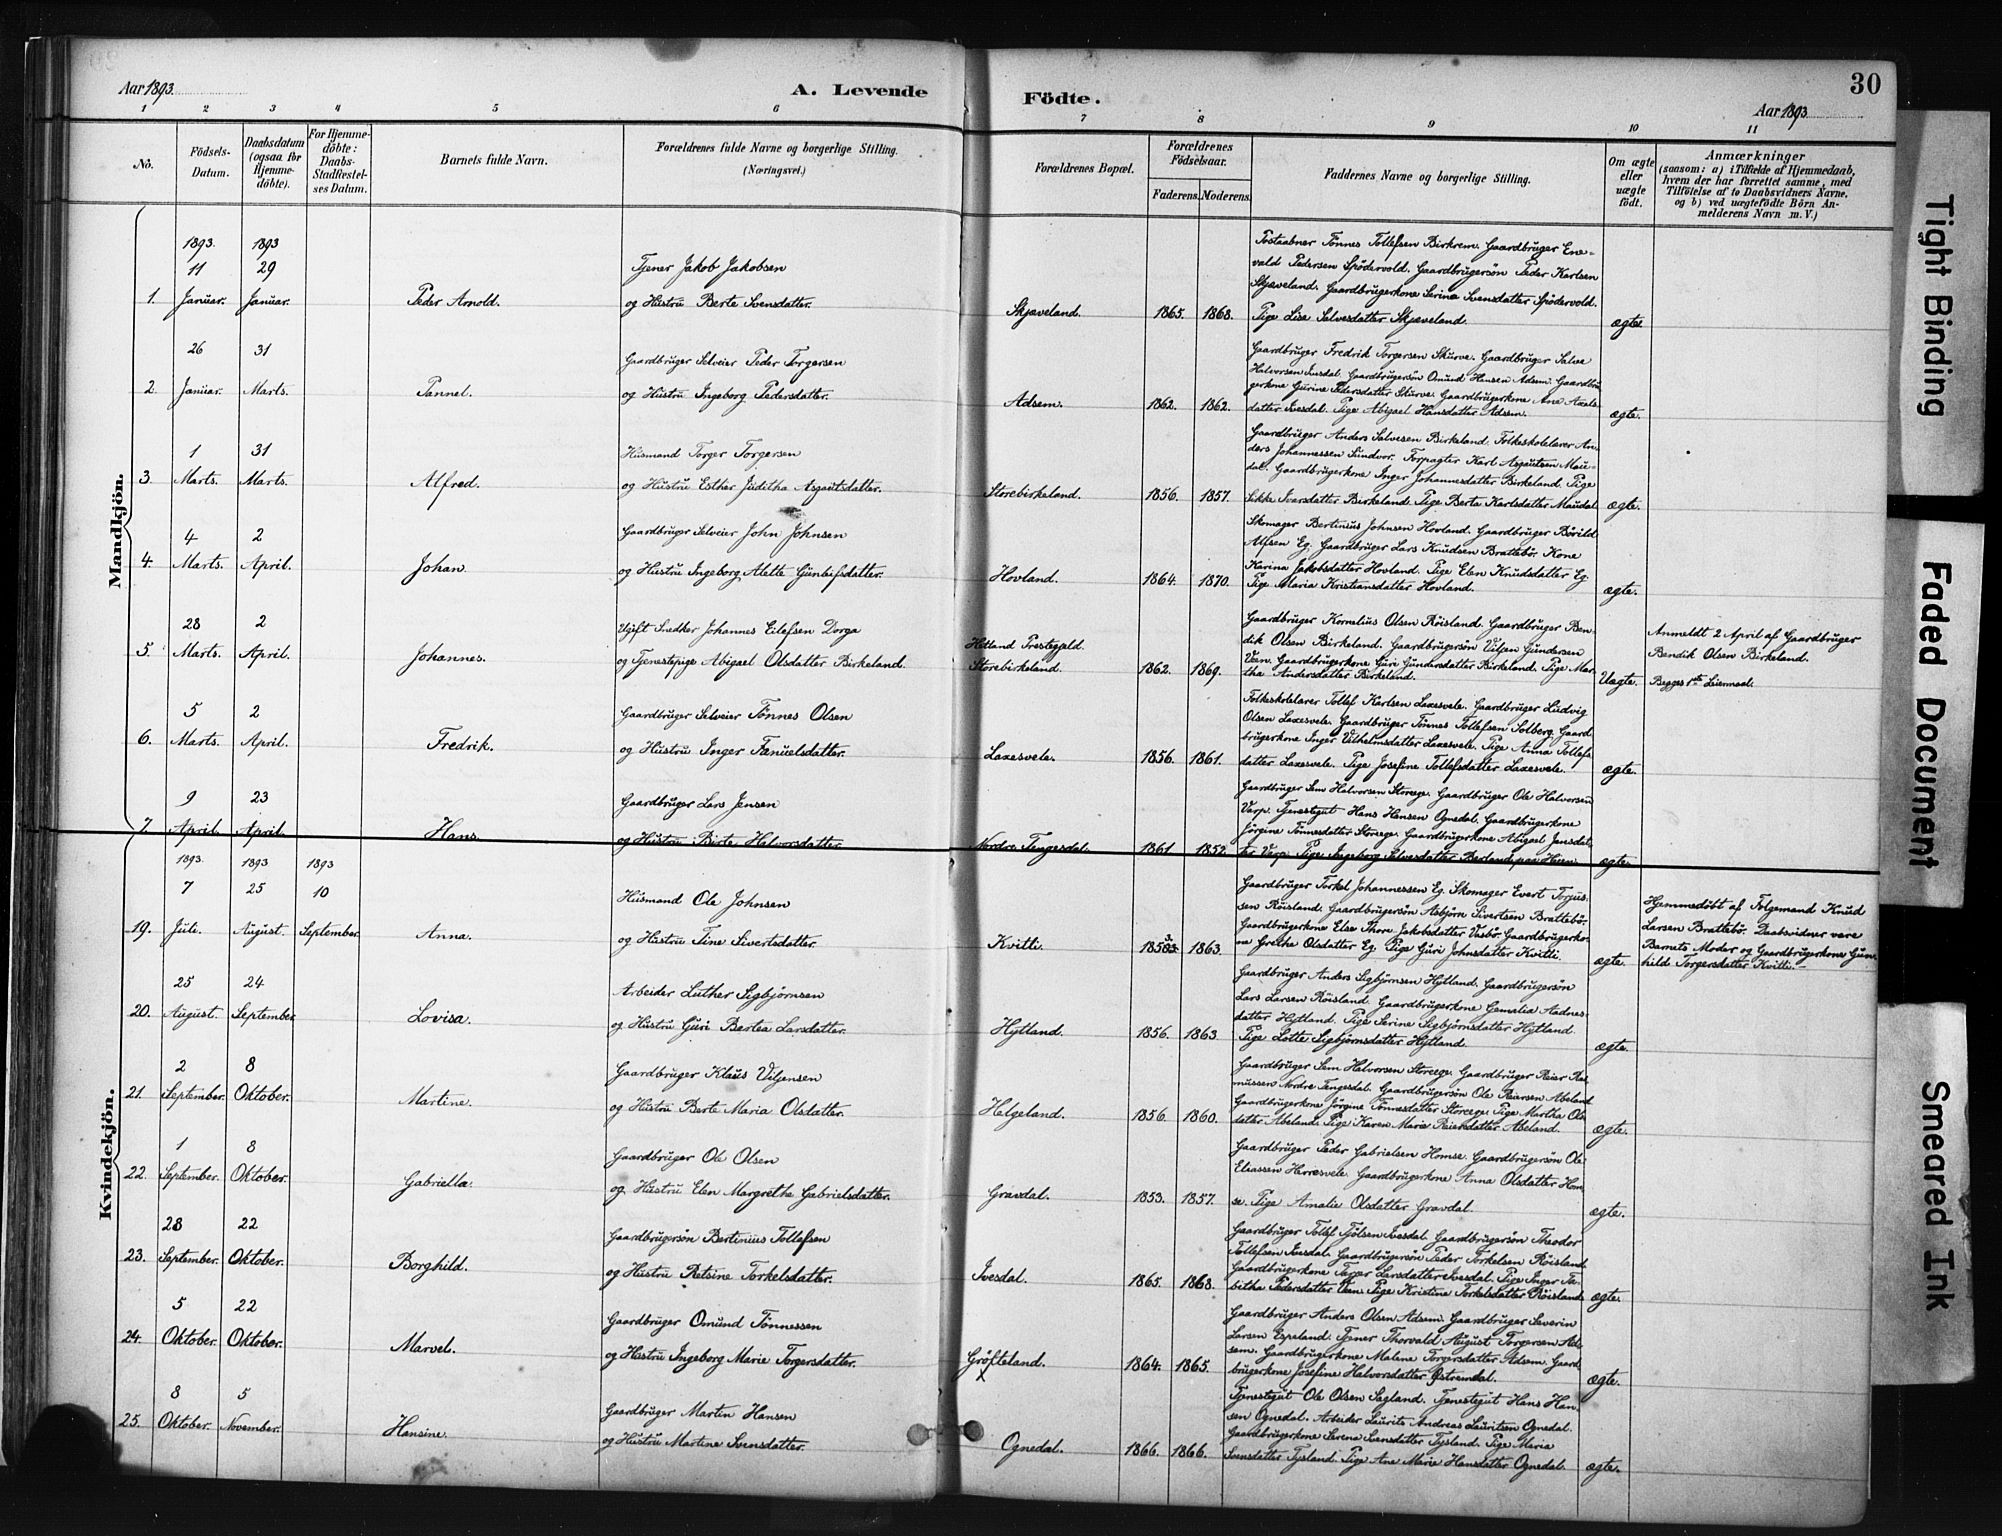 Aar 1893.
A. Levende
Födte.
30
Aar 1893
1 2 3 4 5 6 7 8 9 10 11
No.
Födsels-Datum.
Daabsdatum (ogsaa for Hjemme-döbte).
For Hjemme-döbte: Daabs-Stadfæstel-ses Datum.
Barnets fulde Navn.
Forældrenes fulde Navne og borgerlige Stilling. (Næringsvei.)
Forældrenes Bopæl.
Forældrenes Födselsaar.
Faderens. Moderens.
Faddernes Navne og borgerlige Stilling.
Om ægte eller uægte födt.
Anmærkninger
(saasom: a) i Tilfælde af Hjemmedaab,
hvem der har forrettet samme, med
Tilföielse af to Daabsvidners Navne,
og b) ved uægtefödte Börn An-
melderens Navn m. V.)
Mandkjön.
1893. 1893
11 29 Tjener Jakob Jakobsen
1. Januar. Januar. Peder Arnold. og Hustru Berte Svensdatter. Skjæveland. 1865. 1868. ægte.
Postaabner Tönnes Tollefsen Birkrem. Gaardbruger Ene-
vald Pedersen Spödervold. Gaardbrugersön Peder Karlsen
Skjæveland. Gaardbrugerkone Serine Svensdatter Spödervold.
Pige Lise Salvesdatter Skjæveland.
26 31 Gaardbruger Selveier Peder Torgersen
2. Januar. Marts. Pannel. og Hustru Ingeborg Pedersdatter. Adsem. 1862. 1862. ægte.
Gaardbruger Fredrik Torgersen Skurve. Gaardbruger Salve
Halvorsen Ivesdal. Gaardbrugersön Omund Hansen Adsem. Gaardbru-
gerkone Gurine Pedersdatter Skurve. Gaardbrugerkone Ane Axels-
datter Ivesdal. Pige Abigael Hansdatter Adsem.
1 31 Husmand Torger Torgersen
3. Marts. Marts. Alfred. og Hustru Esther Juditha Asgautsdatter. Storebirkeland. 1856. 1857. ægte.
Gaardbruger Anders Salvesen Birkeland. Folkeskolelærer An-
ders Johannessen Sundvor. Forpagter Karl Asgautsen Mau-
dal. Gaardbrugerkone Inger Johannesdatter Birkeland. Pige
Sikke Ivarsdatter Birkeland. Pige Berta Karlsdatter Maudal
4 2 Gaardbruger Selveier John Johnsen
4. Marts. April. Johan. og Hustru Ingeborg Alette Gunleifsdatter. Hovland. 1864. 1870. ægte.
Skomager Bertinius Johnsen Hovland. Gaardbruger Börild
Alfsen Eg. Gaardbruger Lars Knudsen Brattebö. Kone
Karina Jakobsdatter Hovland. Pige Elen Knudsdatter Eg.
Pige Maria Kristiansdatter Hovland.
28 2 Ugift Snedker Johannes Eilefsen Dorga Hetland Prestegjeld.
5. Marts. April. Johannes. og Tjenestepige Abigael Olsdatter Birkeland. Storebirkeland. 1862. 1869. Uægte.
Gaardbruger Kornelius Olsen Röisland. Gaardbruger Ben-
dik Olsen Birkeland. Gaardbrugersön Viljen Gundersen
Veen. Gaardbrugerkone Guri Gundersdatter Birkeland. Pige Mar-
tha Andersdatter Birkeland.
Anmeldt 2 April af Gaardbruger
Bendik Olsen Birkeland.
Begges 1ste Leiermaal.
5 2 Gaardbruger Selveier Tönnes Olsen
6. Marts. April. Fredrik. og Hustru Inger Fænuelsdatter. Laxesvele. 1856. 1861. ægte.
Folkeskolelærer Tollef Karlsen Laxesvele. Gaardbruger Ludvig
Olsen Laxesvele. Gaardbruger Tönnes Tollefsen Solberg. Gaard-
brugerkone Inger Vilhelmsdatter Laxesvele. Pige Anna Tollefs-
datter Laxesvele. Pige Josefine Tollefsdatter Laxesvele.
9 23 Gaardbruger Lars Jensen
7. April. April. Hans. og Hustru Birte Halvorsdatter. Nordre Tengesdal. 1861 1852. ægte.
Gaardbruger Sem Halvorsen Storeeg. Gaardbruger Ole Halvorsen
Varp. Tjenestegut Hans Hansen Ognedal. Gaardbrugerkone
Jörgine Tönnesdatter Storeeg. Gaardbrugerkone Abigael Jensdat-
ter Varp. Pige Ingeborg Salvesdatter
Kvindekjön.
1893. 1893 1893
7 25 10 Husmand Ole Johnsen
19. Juli. August. September. Anna. og Hustru Tine Sivertsdatter. Kvitti. 1863. ægte.
Gaardbruger Torkel Johannessen Eg. Skomager Evert Torjus-
sen Röisland. Gaardbrugersön Asbjörn Sivertsen Brattebö.
Gaardbrugerkone Else Thom Jakobsdatter Vasbö. Gaardbrugerko-
ne Grethe Olsdatter Eg. Pige Guri Johnsdatter Kvitti.
Hjemmedöbt af Folgemand Knud
Larsen Brattebö. Daabsvidner vare
Barnets Moder og Gaardbrugerkone Gun-
hild Torgersdatter Kvitti.-
25 24 Arbeider Luther Sigbjörnsen
20. August. September. Lovisa. og Hustru Guri Bertea Larsdatter. Hytland. 1856. 1863. ægte.
Gaardbruger Anders Sigbjörnsen Hytland. Gaardbrugersön
Lars Larsen Röisland. Gaardbrugerkone Gemalia Aadnes-
datter Hytland. Pige Serine Sigbjörnsdatter Hytland
Pige Lotte Sigbjörnsdatter Hytland.
2 8 Gaardbruger Klaus Viljensen
21. September. Oktober. Martine. og Hustru Berte Maria Olsdatter. Helgeland. 1856. 1860. ægte.
Gaardbruger Sem Halvorsen Storeeg. Gaardbruger Reier Ras-
mussen Nordre Tengesdal. Gaardbrugersön Ole Reiersen Abeland.
Gaardbrugerkone Jörgine Tönnesdatter Storeeg. Pige Martha Ols-
datter Abeland. Pige Karen Marie Reiersdatter Abeland.
1 8 Gaardbruger Ole Olsen
22. September. Oktober. Gabriella. og Hustru Elen Margrethe Gabrielsdatter. Gravdal. 1853. 1857. ægte.
Gaardbruger Peder Gabrielsen Homse. Gaardbrugersön Ole
Eliassen Herresvele. Gaardbrugerkone Anna Olsdatter Hom-
se. Pige Amalie Olsdatter Gravdal.
28 22 Gaardbrugersön Bertinius Tollefsen
23. September. Oktober. Borghild. og Hustru Retsine Torkelsdatter. Ivesdal. 1865. 1868. ægte.
Gaardbruger Tollef Fjölsen Ivesdal. Gaardbrugersön Theodor
Tollefsen Ivesdal. Gaardbrugersön Peder Torkelsen Röisland
Gaardbrugerkone Larsdatter Ivesdal. Pige Inger Ta-
bitha Pedersdatter Veen. Pige Kristine Torkelsdatter Röisland
5 22 Gaardbruger Omund Tönnessen
24. Oktober. Oktober. Marvel. og Hustru Ingeborg Marie Torgersdatter. Gröfteland. 1864. 1865. ægte.
Gaardbruger Anders Olsen Adsem. Gaardbruger Severin
Larsen Espeland. Tjener Thorvald August Torgersen Ad-
sem. Gaardbrugerkone Malene Torgersdatter Adsem. Gaard-
brugerkone Josefine Halvorsdatter Östremdal.
8 5 Gaardbruger Martin Hansen
25. Oktober. November. Hansine. og Hustru Martine Svensdatter. Ognedal. 1866. 1866. ægte.
Tjenestegut Ole Olsen Sagland. Tjenestegut Hans Han-
sen Ognedal. Arbeider Laurits Andreas Lauritsen Ognedal.
Gaardbrugerkone Serena Svensdatter Tysland. Pige Maria
Svensdatter Tysland. Pige Ane Marie Hansdatter Ognedal.
Tight Binding
Faded Document
Smeared Ink